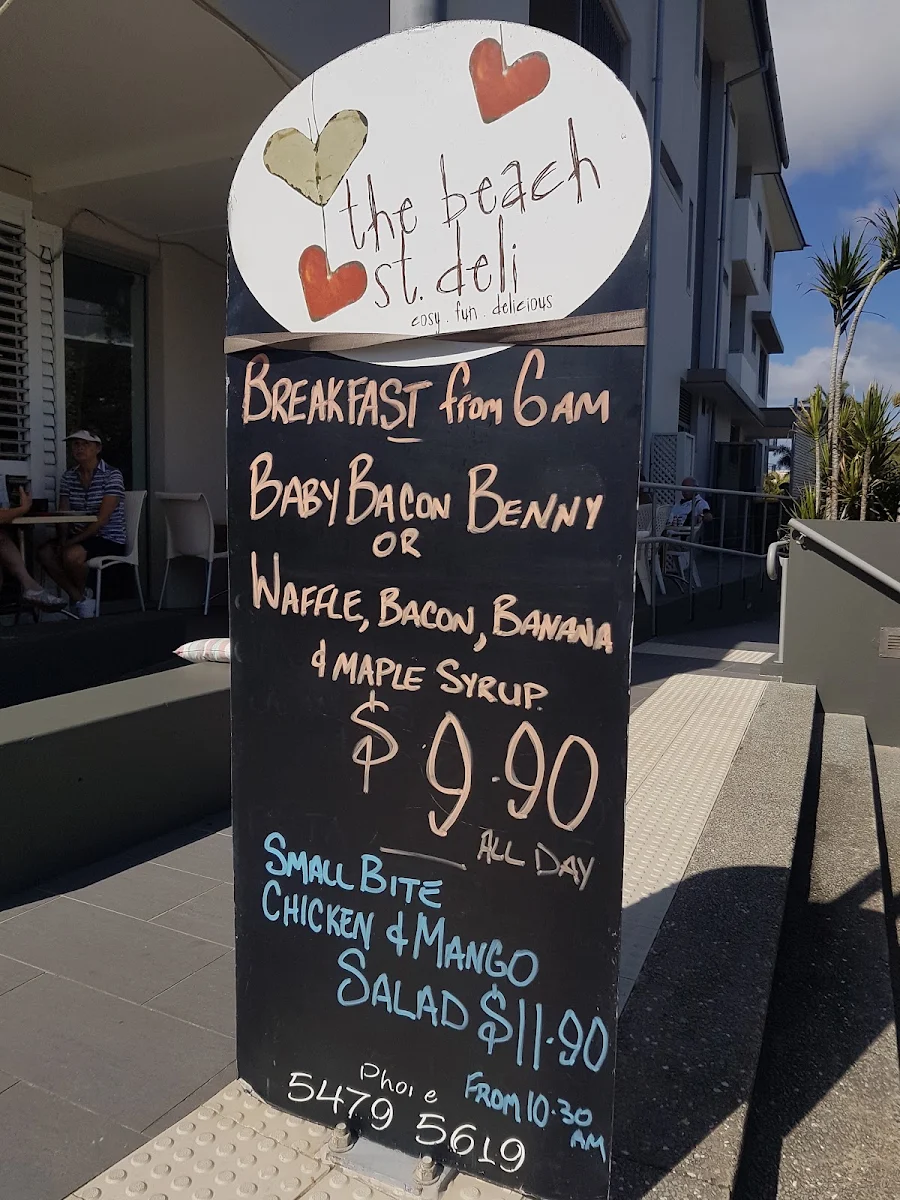 the beach
st. deli
cosy . fun . delicious
BREAKFAST from 6AM
BABY BACON BENNY
OR
WAFFLE, BACON, BANANA
& MAPLE SYRUP.
$ 9.90
ALL DAY
SMALL BITE
CHICKEN & MANGO
SALAD $11.90
FROM 10.30
AM
Phone
5479 5619